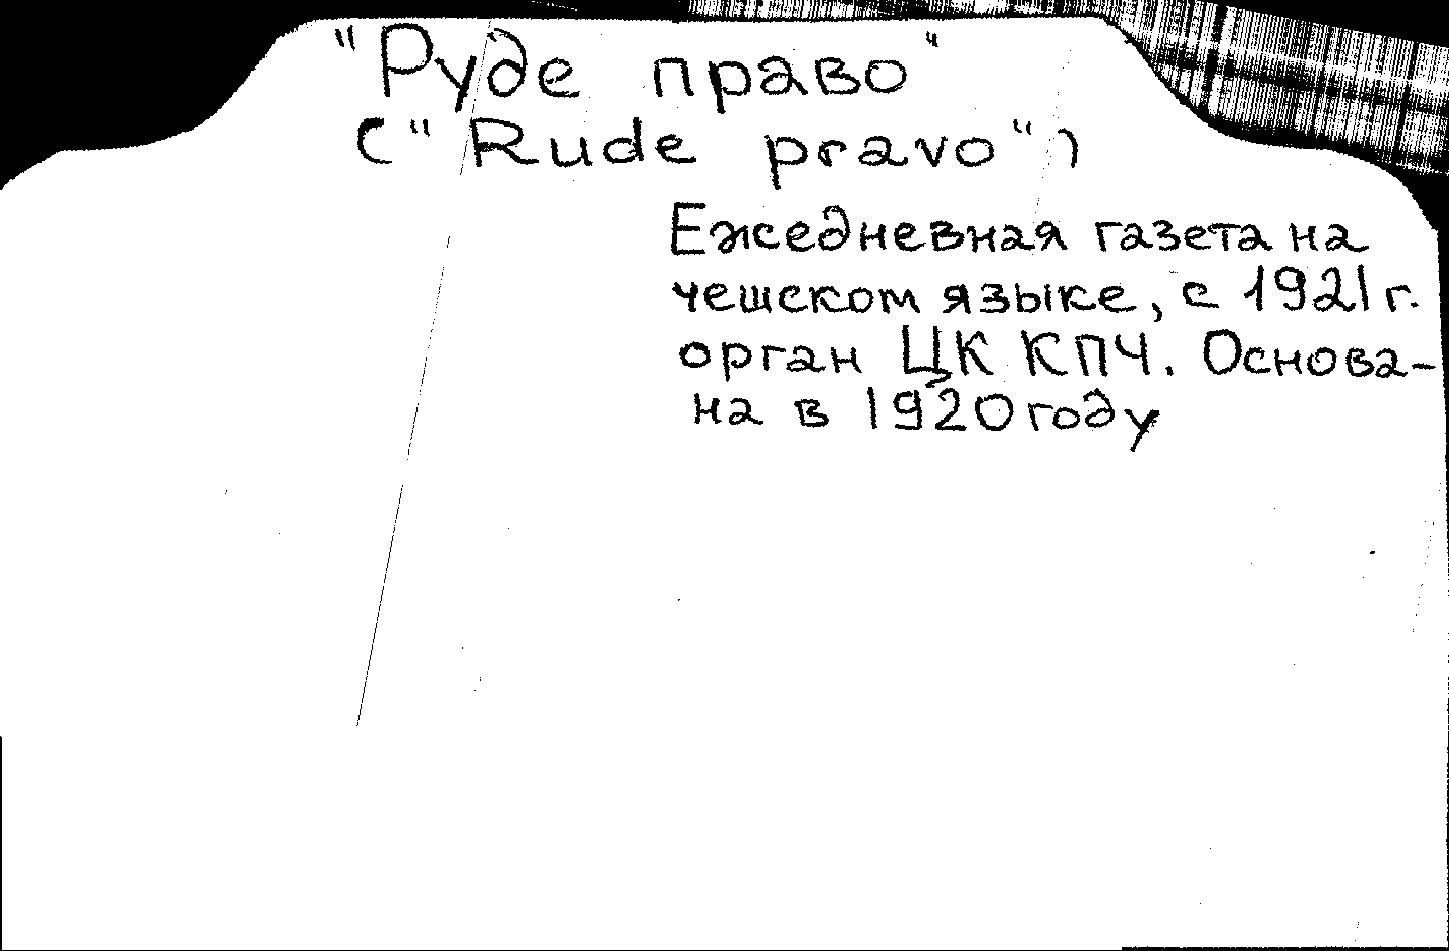 "Руде право"
("Rude pravo")
Ежедневная газета на
чешском языке, с 1921 г.
орган ЦК КПЧ. Основа-
на в 1920 году